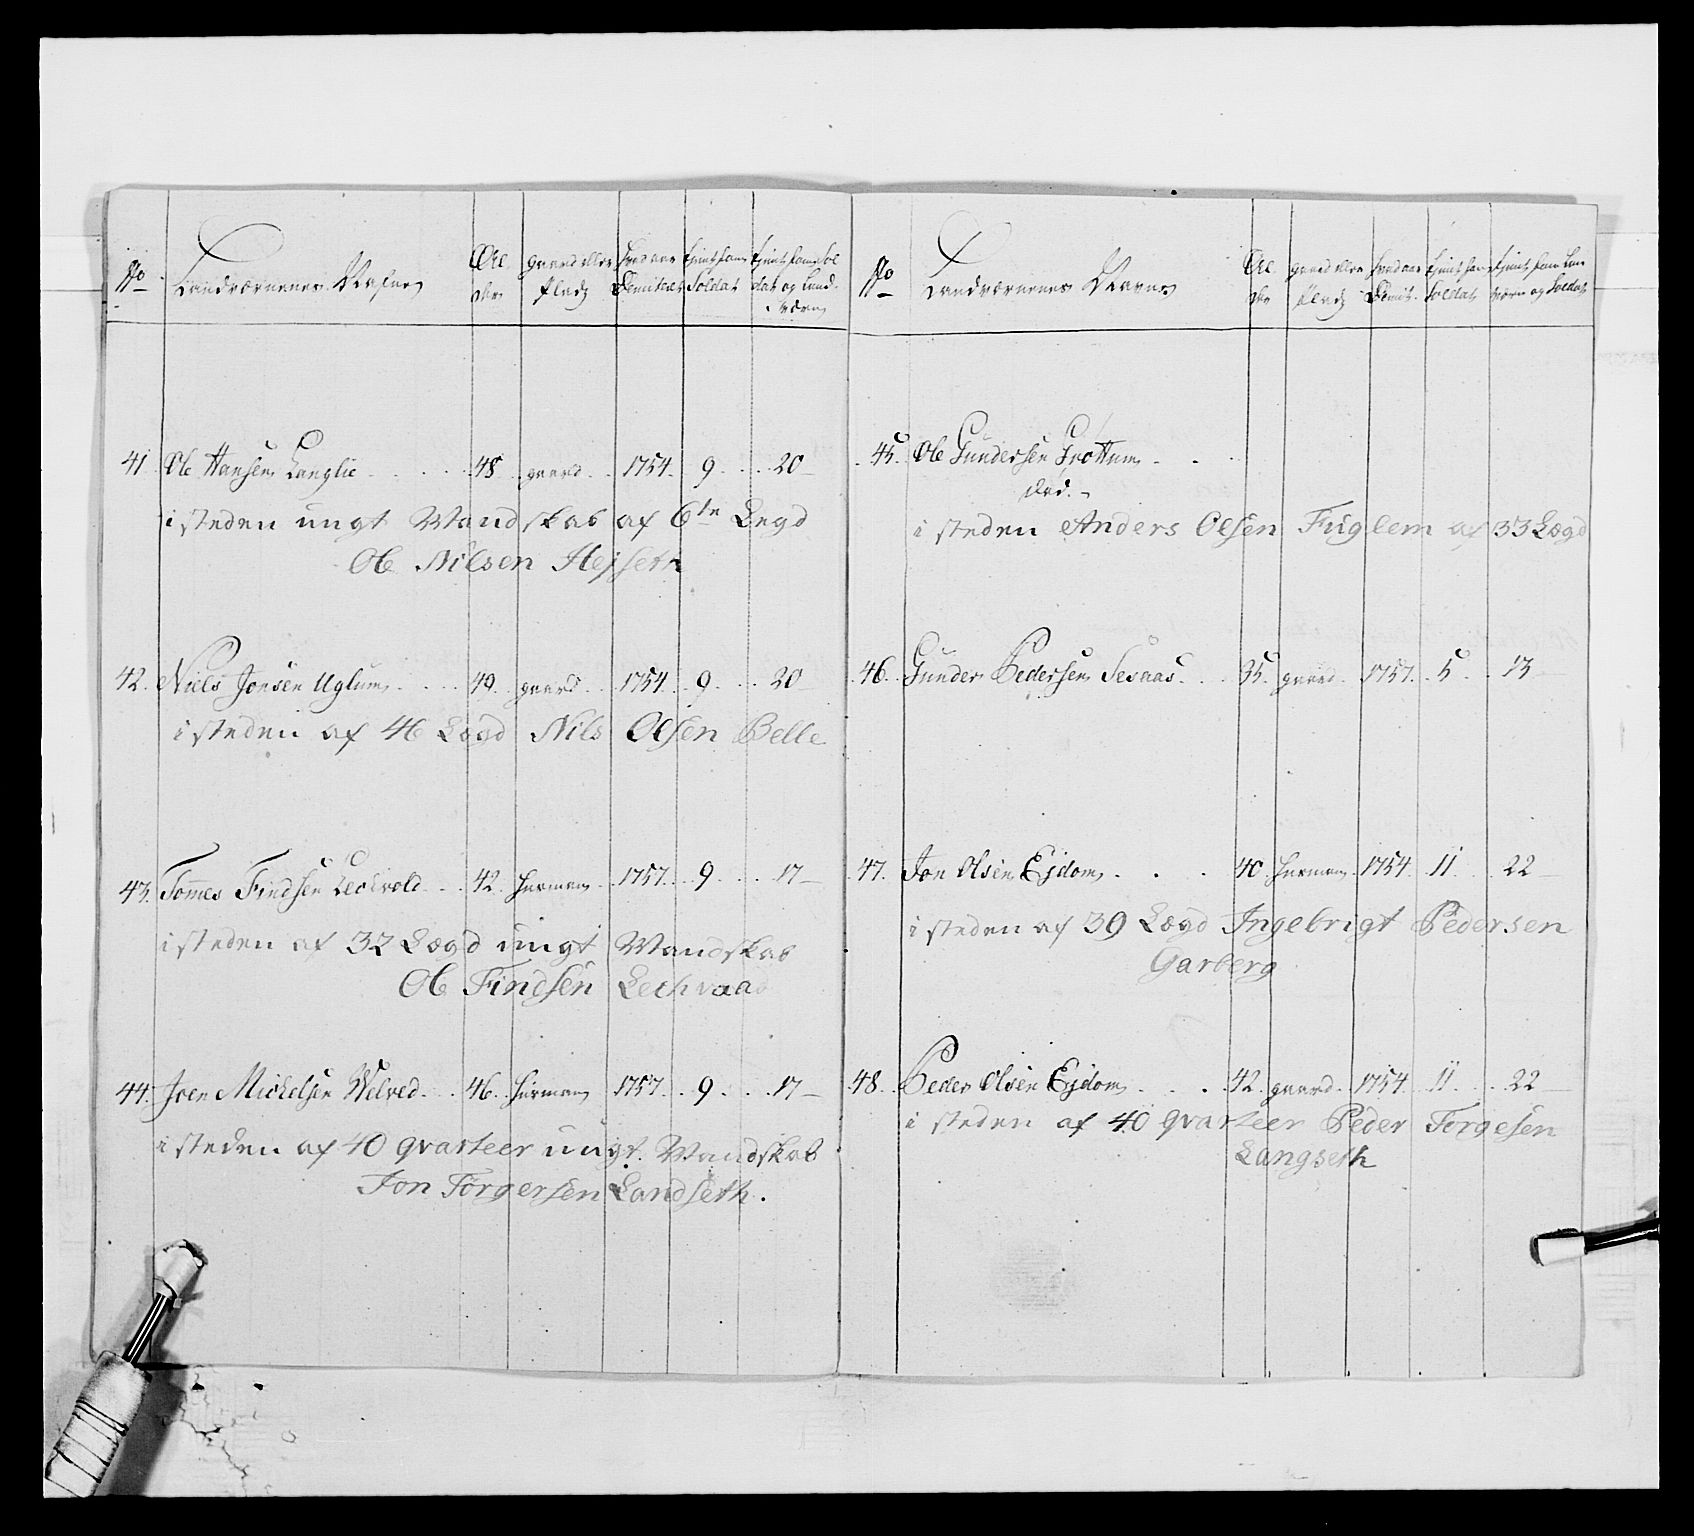 No
Landværnenes Nafne
Al
der
gaard eller
Plads
hvad aar
Dimitert
tient som
Soldat
tient som Sol
dat og Land
værn
41. Ole Hansen Langlie 48 gaard 1754. 9 20
i steden ungt Mandskab af 6te Legd
Ole Nilsen Hejseth
42. Niels Jonsen Uglum 49 gaard 1754. 9 20
i steden af 46 Lægd Nils Olsen Belle
43. Tommes Findsen 42 1757. 9 17
i steden af 32 Lægd ungt Mandskab
Ole Findsen Lechvaad
44. Joen Mickelsen Welved 46 1757. 9 17
i steden af 40 qvarteer ungt Mandskab
Jon Torgersen Landseth.
No
Landværnenes Navne
Al
der
gaard eller
Plads
hvad aar
Dimit.
tient som
Soldat
tient som Lan
værn og Soldat
45. Ole Gundersen Grottum
død.
i steden Anders Olsen Fuglem af 33 Lægd
46. Gunder Pedersen Sesaas 35. gaard 1757. 5 13
47. Jon Olsen Ejdom 40 1754. 11 22
i steden af 39 Lægd Ingebrigt Pedersen
Garberg
48. Peder Olsen Ejdom 42. gaard 1754. 11 22
i steden af 40 qvarteer Peder Torgesen
Langseth